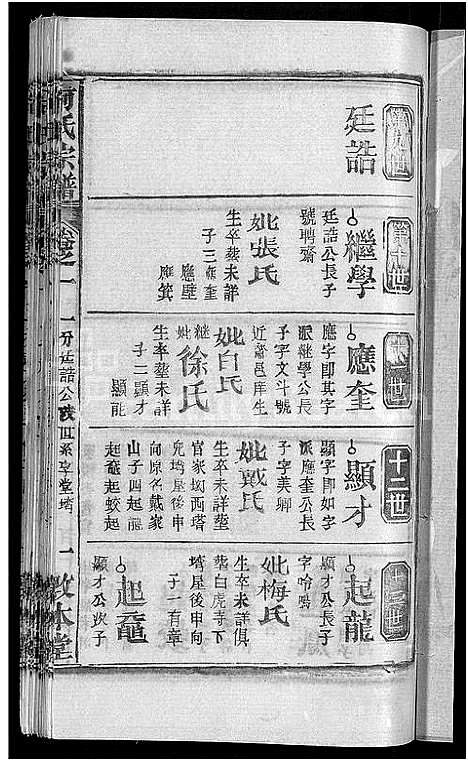 第九世
廷誥
第十世
繼學
廷誥公長子
號聘齋
妣張氏
生卒葬未詳
子三應奎
應壁
應箕
十一世
應奎
應字即其字
派繼學公長
子字文斗號
近齋邑庠生
妣白氏
繼妣徐氏
生卒葬未詳
子二顯才
顯能
十二世
顯才
顯字即如字
派應奎公長
子字美卿
妣戴氏
生卒未詳塟
官家坳西塔
兒塆屋後申
向原名戴家
山子四起龍
起鼋起蛟起
十三世
起龍
顯才公長子
字吟鳴
妣梅氏
生卒未詳俱
塟白虎寺下
塆屋後申向
子一有章
起鼋
顯才公次子
氏宗譜
卷之一
一分廷誥公
世系
一
敦本堂